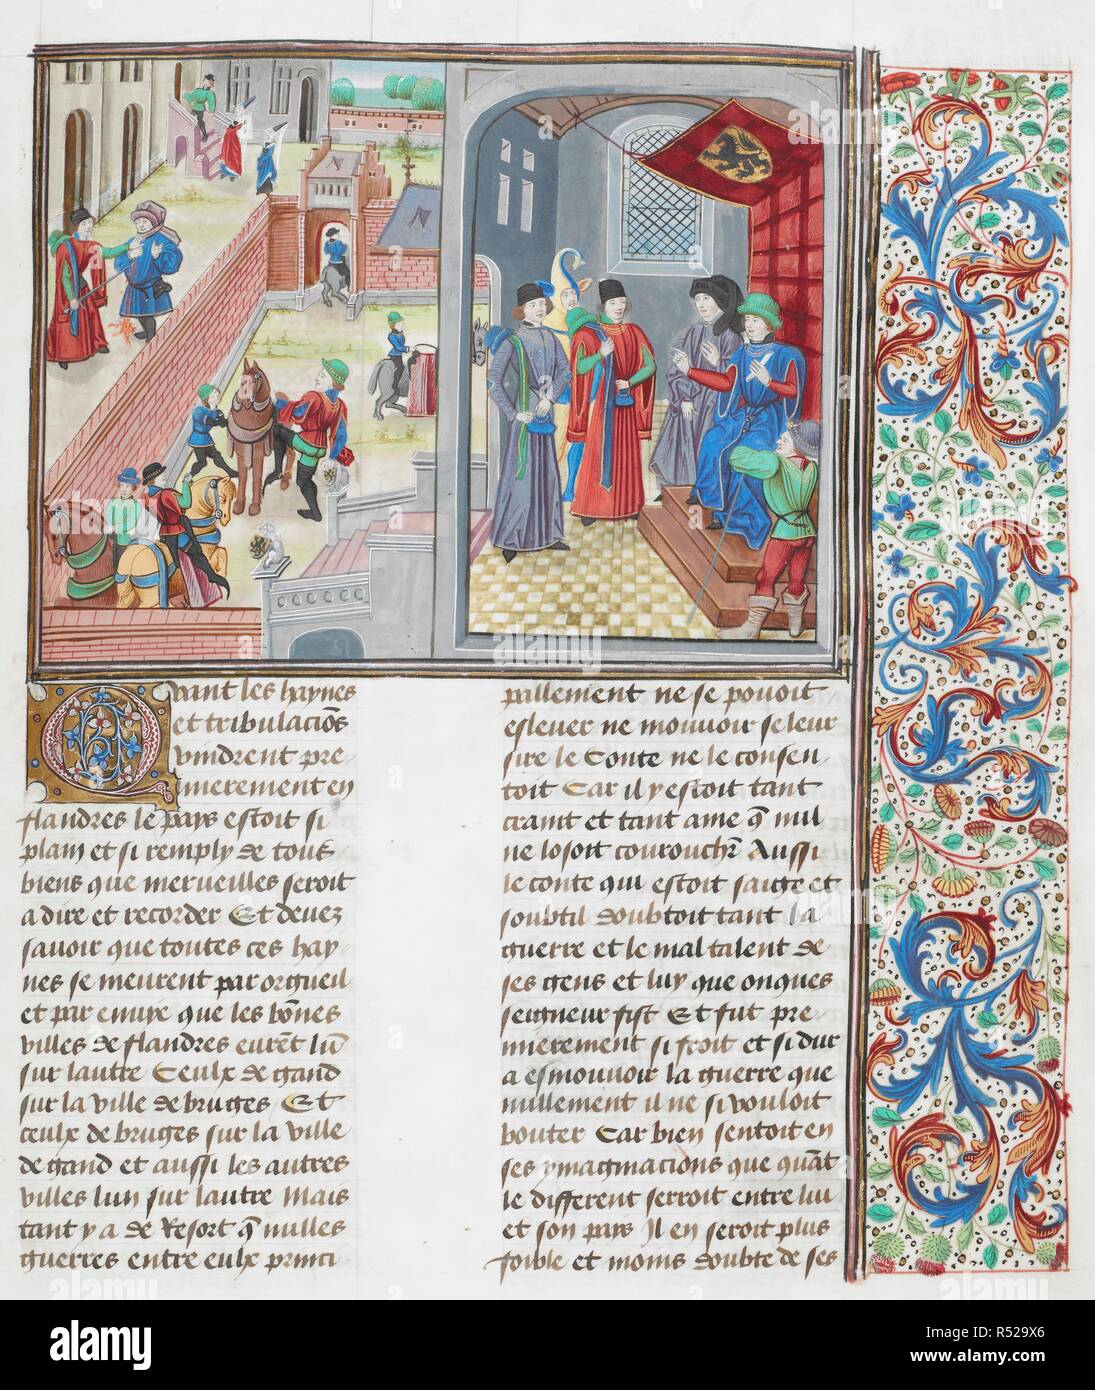 Quant les haynes
et tribulacios
vindrent pre
mierement en
flandres le pays estoit si
plain et si remply de tous
biens que merueilles seroit
a dire et recorder Et deuez
sauoir que toutes ces hay
nes se meurent par orgueil
et par enuye que les bones
villes de flandres eurent lun
sur lautre Ceulx de gand
sur la ville de bruges Et
ceulx de bruges sur la ville
de gand et aussi les autres
villes lun sur lautre Mais
tant y a de Resort q nulles
guerres entre eulx princi
pallement ne se pouoit
esleuer ne mouuoir se leur
sire le Conte ne le consen
toit Car il y estoit tant
cramt et tant ame q nul
ne losoit couroucher Aussi
le conte qui estoit saige et
soubtil doubtoit tant la
guerre et le mal talent de
ses gens et luy que onques
seigneur fist Et fut pre
mierement si froit et si dur
a esmouuoir la guerre que
nullement il ne si vouloit
bouter Car bien sentoit en
ses ymaginacions que quat
le different serroit entre lui
et son pays Il en seroit plus
foible et moins doubte de ses
alamy
Image ID: R529X6
www.alamy.com